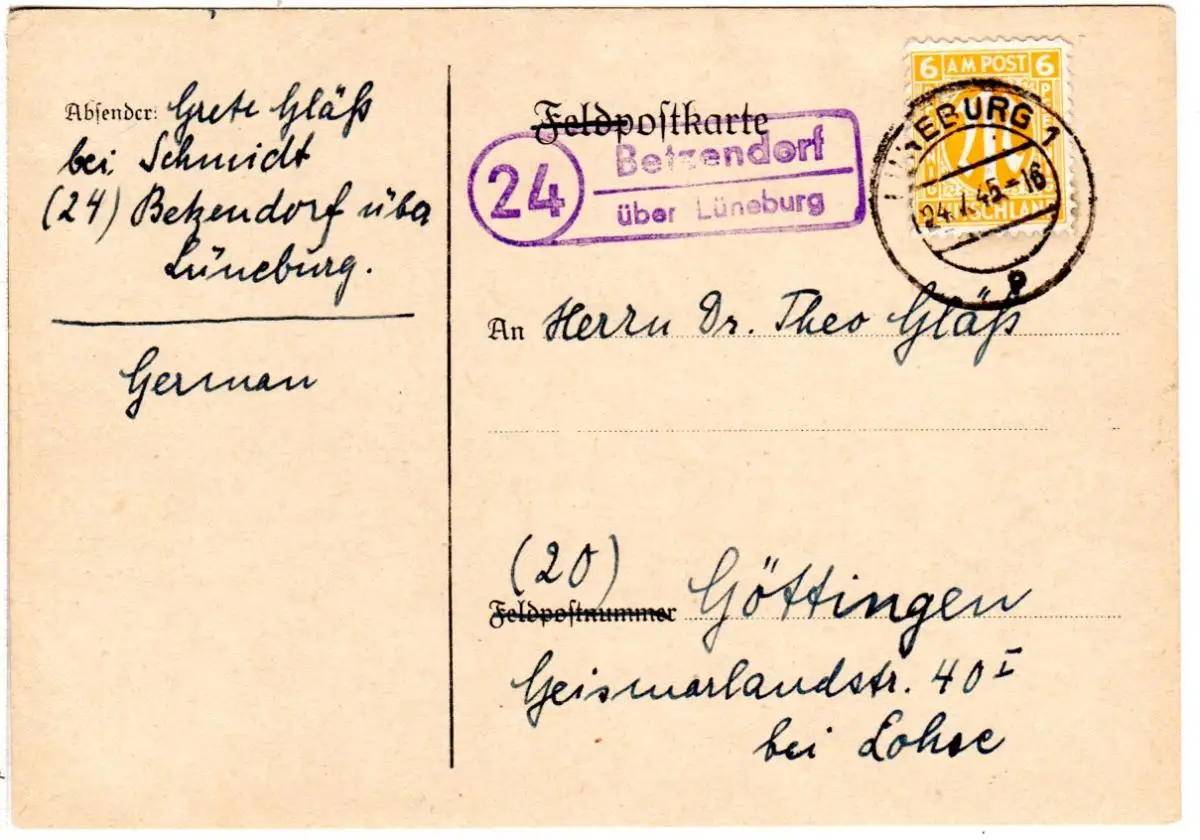 Absender: Grete Gläß
bei Schmidt
(24) Betzendorf über
Lüneburg.
German
Feldpostkarte
24
Betzendorf
über Lüneburg
6 AM POST 6
DEUTSCHLAND
LÜNEBURG 1
45-16
An Herrn Dr. Theo Gläß
(20)
Feldpostnummer Göttingen
Geismarlandstr. 40 I
bei Lohse